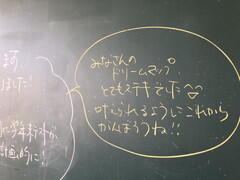 ます
しました!
みなさんの
ドリームマップ
とてもステキでした
叶えられるようにこれから
がんばろうね!!
的に!